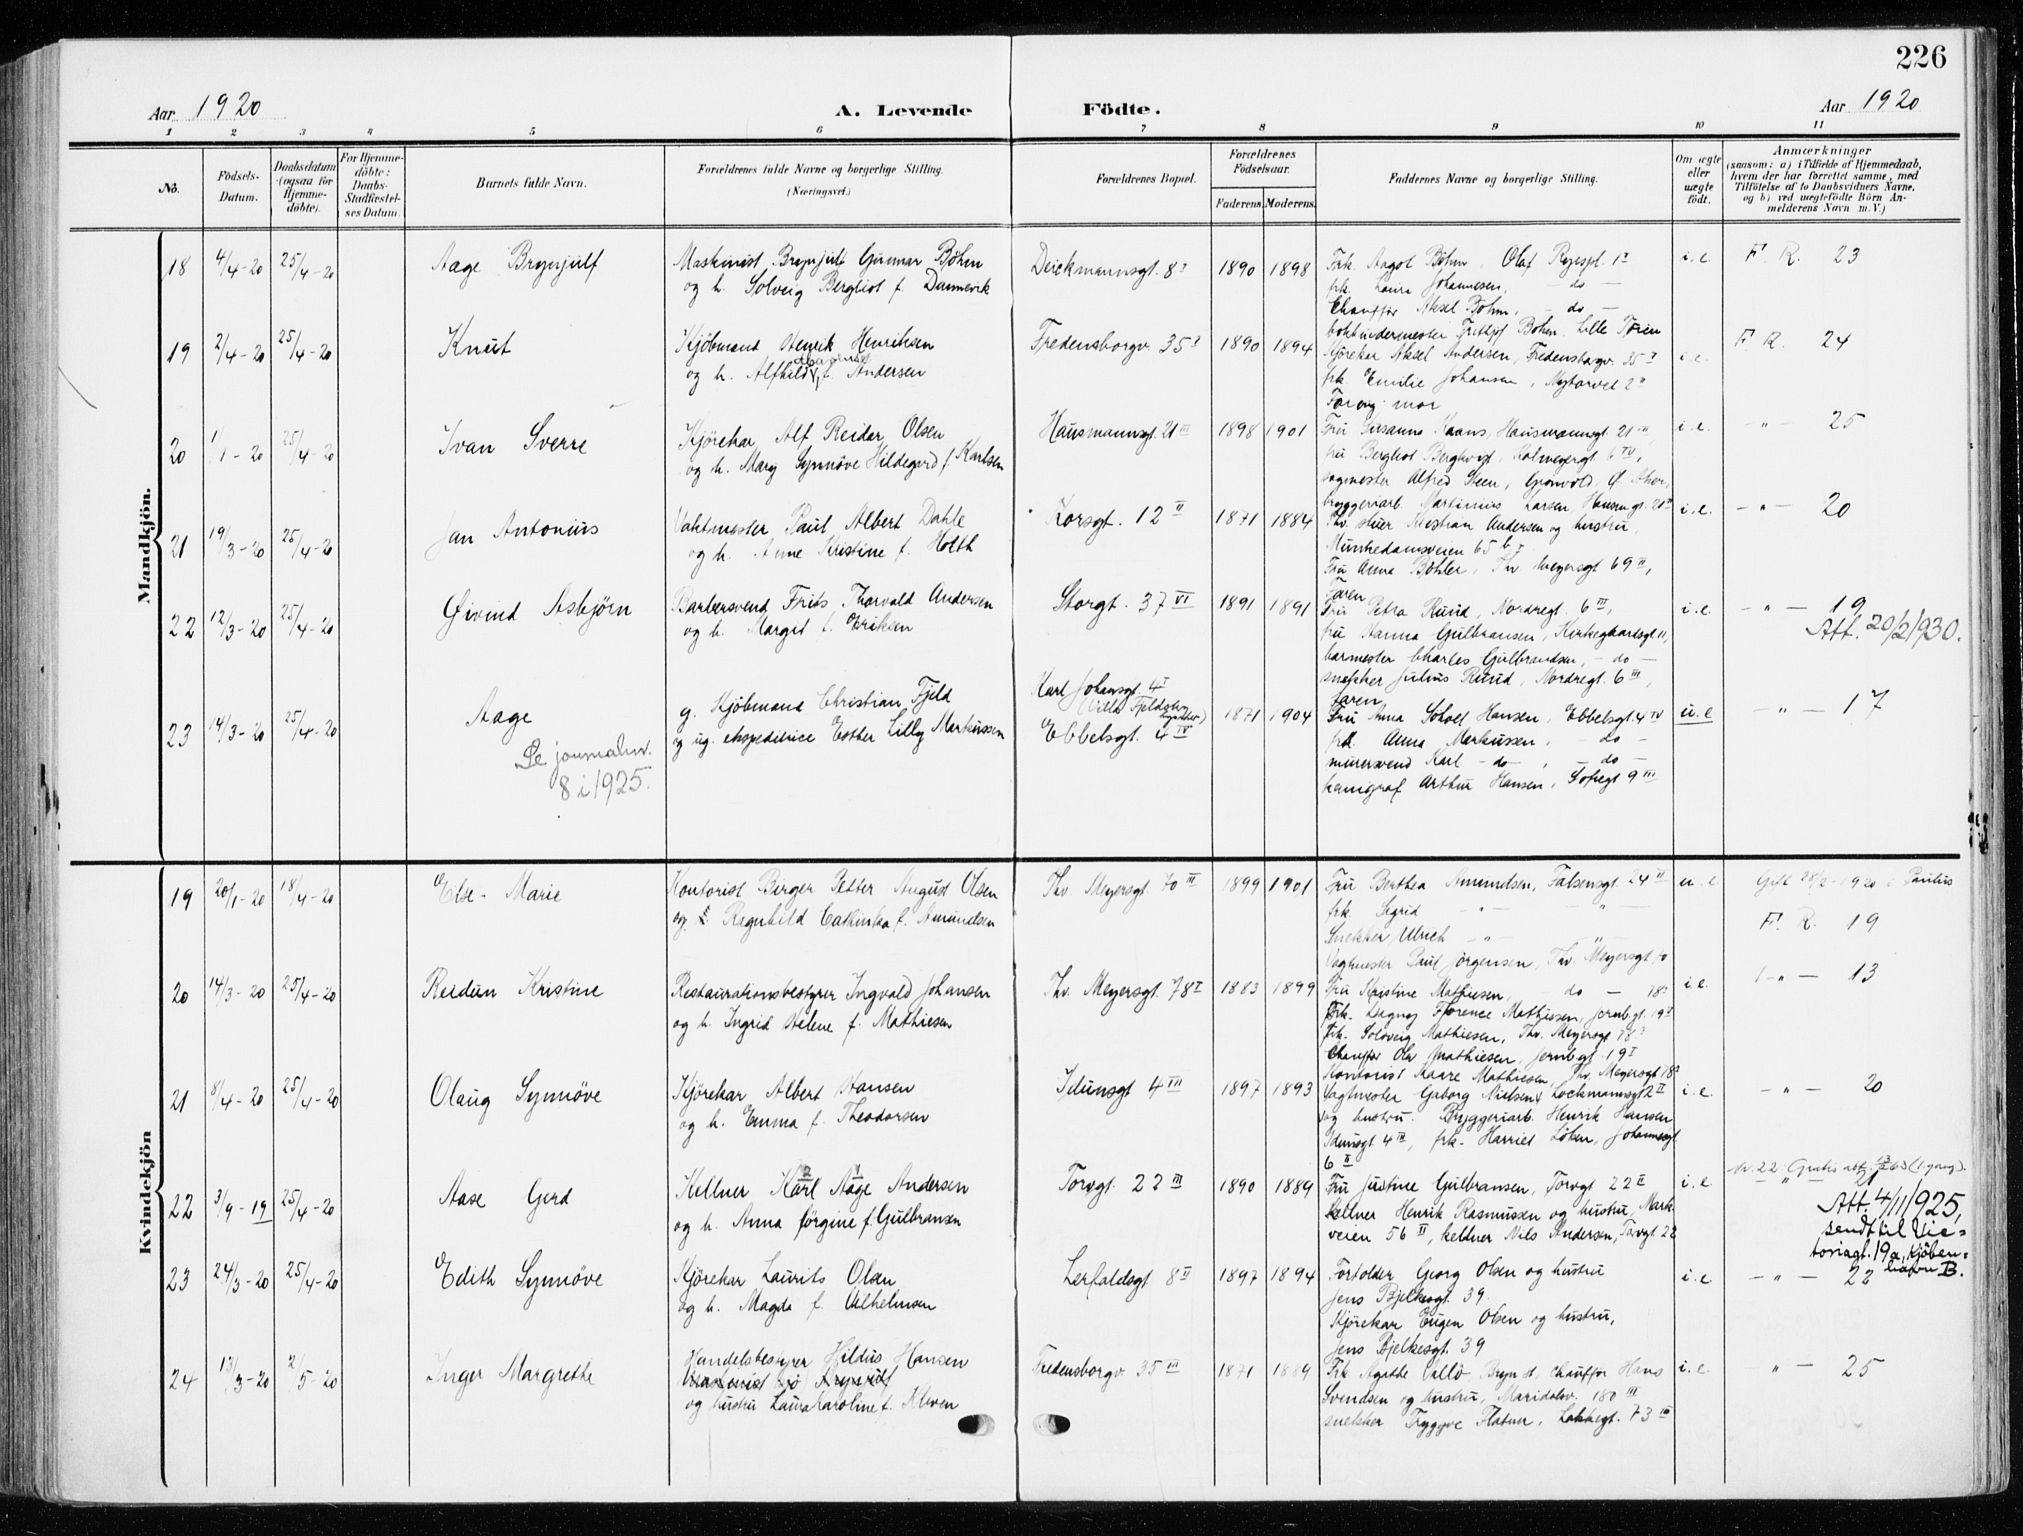 226
Aar 1920
A. Levende
Födte.
Aar 1920
1 2 3 4 5 6 7 8 9 10 11
No.
Födsels-Datum.
Daabsdatum (ogsaa for Hjemme-döbte).
For Hjemme-döbte: Daabs-Stadfæstel-ses Datum.
Barnets fulde Navn.
Forældrenes fulde Navne og borgerlige Stilling. (Næringsvei.)
Forældrenes Bopæl.
Forældrenes Födselsaar.
Faderens. Moderens.
Faddernes Navne og borgerlige Stilling.
Om ægte eller uægte födt.
Anmærkninger
(saasom: a) i Tilfælde af Hjemmedaab, hvem der har forrettet samme, med Tilföielse af to Daabsvidners Navne, og b) ved uægtefödte Börn An-melderens Navn m. V.)
Mandkjön.
18 4/4-20 25/4-20 Aage Brynjulf
Maskinist Brynjulf Gunnar Böhm
og h. Solveig Bergliot f. Dannevik
Deickmannsgt. 8 I 1890 1898
Frk. Aagot Böhm, Olaf Ryespl. 1
frk. Laura Johannesen, - do -
Chauffør Aksel Böhm, - do -
bokbindermester Fritjof Bohm, Lille Tøien
i.e. F. R. 23
19 2/4-20 25/4-20 Knut
Kjöbmand Henrik Henriksen
og h. Alfhild f. Andersen
Fredensborgv. 35 I 1890 1894
Kjörekar Aksel Andersen, Fredensborgv. 35 I
frk. Emilie Johansen, Nytorvet 2
Foreng. mor
i.e. F. R. 24
20 1/1-20 25/4-20 Ivan Sverre
Kjörekar Alf Reidar Olsen
og h. Mary Synnöve Hildegard f. Karlsen
Hausmannsgt. 21 III 1898 1901
Fru Susanna Kaans, Hausmannsgt. 21
fru Bergliot Berghvist, Holmegergt 6 IV,
Alfred Steen, Grönvold, Ø. Aker,
bryggeriarb. Martinius Larsen, Hausmgt. 21 III
i.e. - " - 25
21 19/3-20 25/4-20 Jan Antonius
Vaktmester Paul Albert Dahle
og h. Anne Kristine f. Holth
Korsgt. 12 II 1871 1884
Kristian Andersen og hustru,
Munkedamsveien 65 b
Fru Anna Böhler, Thv. Meyersgt 69 II,
Faren
i.e. - " - 20
22 12/3-20 25/4-20 Øivind Asbjörn
Barbersvend Frits Thorvald Andersen
og h. Margit f. Eriksen
Storgt. 37 VI 1891 1891
Fru Petra Ruud, Nordregt. 6 III,
fru Hanna Gulbransen, Kirkegaardsgt 11,
barmester Charles Gulbrandsen, - do -
snekker Julius Ruud, Nordregt. 6 III,
faren
i.e - " - 19
Att. 20/2/930.
23 14/3-20 25/4-20 Aage
g. Kjöbmand Christian Fjeld
og ug. ekspeditrice Esther Lilly Markussen
Karl Johansgt. 4 I
Ebbelsgt. 4 IV 1871 1904
Fru Anna Hansen, Ebbelsgt. 4 IV
frk. Anna Markussen, - do -
murersvend Karl - do -, - do -
Arthur Hansen, Sofiegt 9 III
u.e - " - 17
Se journalnr.
8 i 1925.
Kvindekjön
19 20/1-20 18/4-20 Else-Marie
Kontorist Birger Petter August Olsen
og Ragnhild Cathinka f. Amundsen
Thv. Meyersgt 70 III 1899 1901
Fru Berthea Amundsen, Falsensgt. 24 II
frk. Sigrid - " - - " -
Snekker Ulrich - " - - " -
Vagtmester Paul Jörgensen, Thv. Meyersgt 70
u.e Gift 28/2-1920 i Paulus
F. R. 19
20 14/3-20 25/4-20 Reidun Kristine
Restaurationsbestyrer Ingvald Johansen
og h. Ingrid Helene f. Mathiesen
Thv. Meyersgt. 78 I 1883 1899
Fru Kristine Mathiesen, - do - 78
Frk. Dagny Florence Mathiesen, Jernbgt. 19 I
frk. Solveig Mathiesen, Thv. Meyersgt 78
Chauffør Olav Mathiesen, Jernbgt. 19 I
Kontorist Kaare Mathiesen, Thv. Meyersgt 78
i.e. - " - 13
21 8/4-20 25/4-20 Olaug Synnöve
Kjörekar Albert Hansen
og h. Emma f. Theodorsen
Idunsgt 4 III 1897 1893
Vagtmester Gaborg Nielsen, Lockmannsgt 2 II
og hustru. Bryggeriarb. Henrik Hansen
Idunsgt 4 III, frk. Harriet Löken, Johannesgt
6 II
i.e. - " - 20
22 3/9-19 25/4-20 Aase Gerd
Kellner Karl Aage Andersen
og h. Anna Jörgine f. Gulbransen
Torvgt. 22 III 1890 1889
Fru Justine Gulbransen, Torvgt 22 II
kellner Henrik Rasmussen og hustru, Mark-
veien 56 II, kellner Nils Andersen, Torvgt 22
i.e. - " - 21
Nr. 22: Gratis att. (1. gang).
Att. 4/11/925,
sendt til Vic-
toriagt. 19a, Kjøben-
havn B.
23 24/3-20 25/4-20 Edith Synnöve
Kjörekar Laurits Olsen
og h. Magda f. Vilhelmsen
Lerfaldsgt 8 II 1897 1894
Forfolder Georg Olsen og hustru
Jens Bjelkesgt. 39.
Kjörekar Eugen Olsen og hustru,
Jens Bjelkesgt. 39
i.e - " - 22
24 13/3-20 2/5-20 Inger Margrethe
Handelsbestyrer Hildus Hansen
og hustru Laura Karoline f. Kleven
Fredensborgv. 35 III 1871 1889
Frk Agathe Vallö, Bryn st, chauffør Hans
Svendsen og hustru, Maridalsv. 180 III
snekker Tryggve Flatner, Lakkegt. 73 III
i.e. " - 25